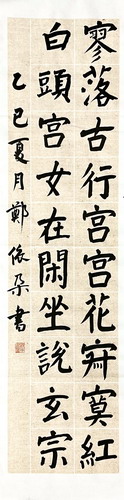 寥落古行宮宮花㝝寞紅
白頭宮女在閑坐說玄宗
乙巳夏月鄭依朶書